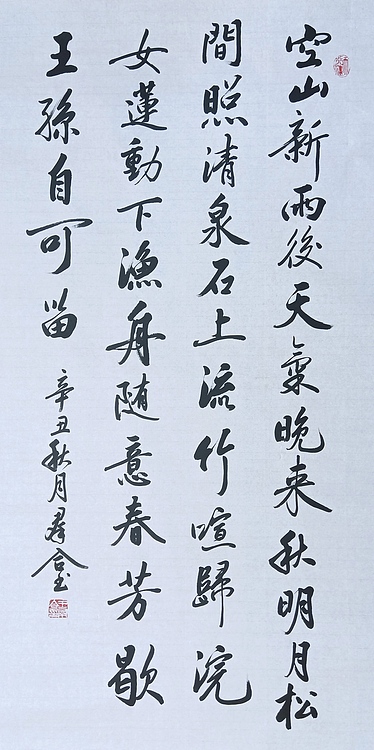 空山新雨後天氣晚来秋明月松
間照清泉石上流竹喧歸浣
女蓮動下漁舟随意春芳歇
王孫自可留
辛丑秋月